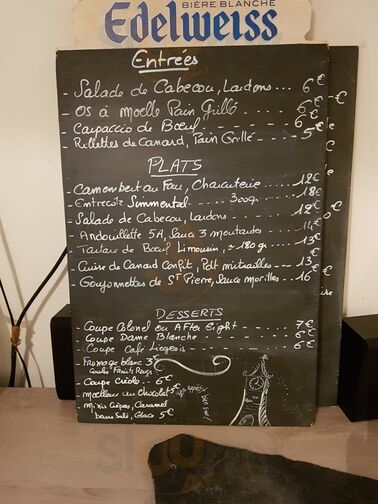 BIÈRE BLANCHE
Edelweiss
Entrées
- Salade de Cabecou, Lardons ... 6€
- Os à Moelle Pain Grillé 6€
- Carpaccio de Bœuf 6€
- Rillettes de Canard, Pain Grillé 5€
PLATS
- Camembert au Four, Charcuterie 12€
- Entrecôte Simmental 300gr 18€
- Salade de Cabecou, Lardons 12€
- Andouillette 5A, Sauce 3 moutardes 14€
- Tartare de Bœuf Limousin, ≈ 180 gr 13€
- Cuisse de Canard Confit, Pdt mitrailles 13€
- Goujonnettes de St Pierre, Sauce Morilles 16€
DESSERTS
- Coupe Colonel ou After Eight 7€
- Coupe Dame Blanche 6€
- Coupe Café Liégeois 6€
Fromage blanc 3€
Coulis Fruits Rouges
Coupe Créole .. 6€
Moelleux au Chocolat 5€
Minis Crêpes, Caramel
beurre Salé, Glace 5€